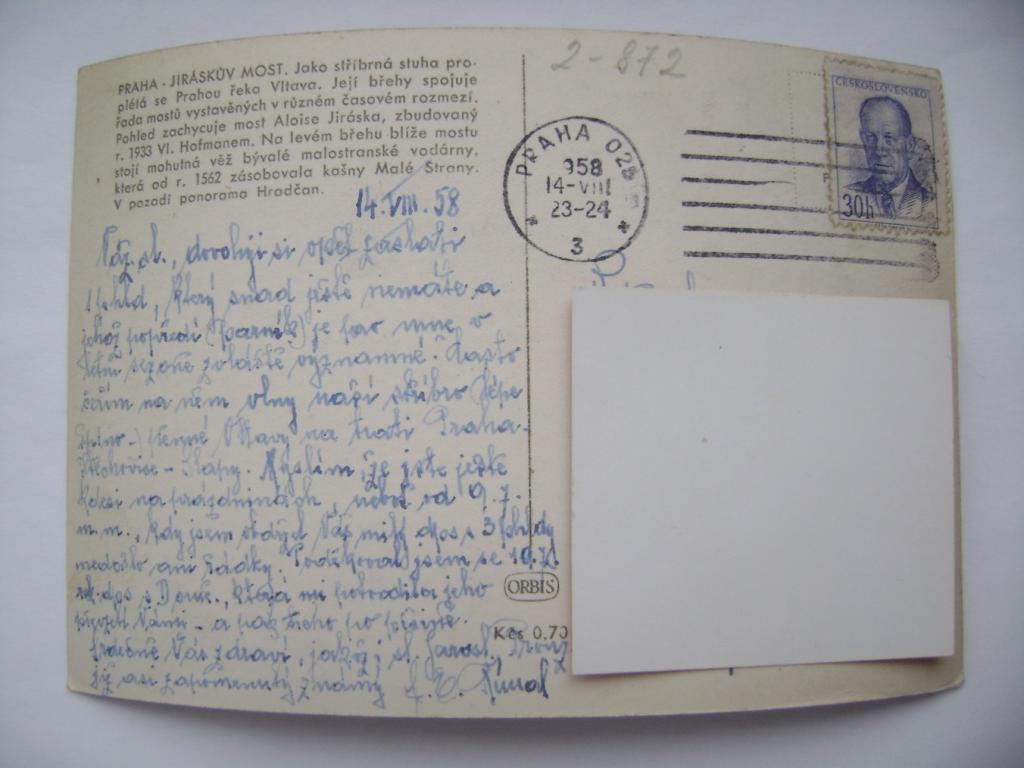 PRAHA - JIRÁSKŮV MOST. Jako stříbrná stuha pro-
plétá se Prahou řeka Vltava. Její břehy spojuje
řada mostů vystavěných v různém časovém rozmezí.
Pohled zachycuje most Aloise Jiráska, zbudovaný
r. 1933 Vl. Hofmanem. Na levém břehu blíže mostu
stojí mohutná věž bývalé malostranské vodárny,
která od r. 1562 zásobovala kašny Malé Strany.
V pozadí panorama Hradčan.
2-872
PRAHA 025
958
14-VIII
23-24
3
ČESKOSLOVENSKO
30h
14.VIII.58
Váž. sl., dovoluji si opět zaslati
1 pohled, který snad ještě nemáte a
jehož popředí (parník) je pro mne v
letní sezoně zvláště významné. Často
na něm vlny naší stříbro (lépe
pěnné Vltavy na trati Praha-
Štěchovice - Slapy. Myslím, že jste ještě
kdesi na prázdninách, neboť od 9.7.
m.m., kdy jsem obdržel Váš milý dopis s 3 pohledy
nedošlo ani řádky. Poděkoval jsem se 10.7.
dop. s která mi potvrdila jeho
převzetí Vámi - a pak ticho po pěšině.
Srdečně Vás zdraví, jakož i sl. Jarosl.
již asi zapomenutý známý
ORBIS
Kčs 0.70